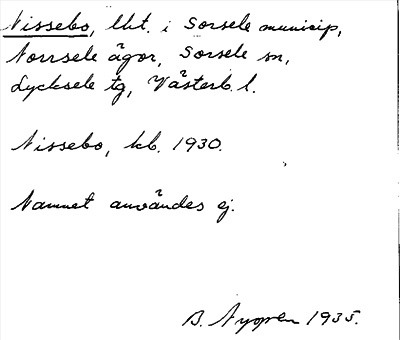 Nissebo, lht. i Sorsele municip,
Norrsele ägor, Sorsele sn,
Lycksele tg, Västerb. l.
Nissebo, kb. 1930.
Namnet användes ej.
B. 1935.